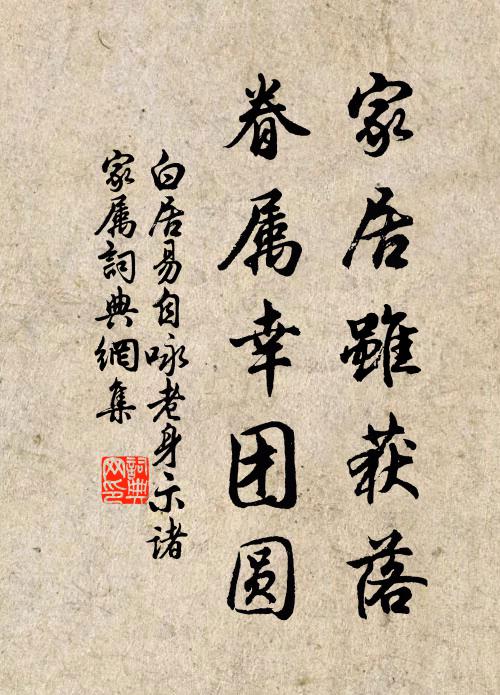 家居虽获落
眷属幸团圆
白居易自咏老身示诸
家属词典網集
詞典网印